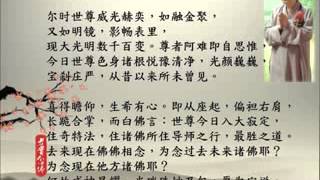 尔时世尊威光赫奕，如融金聚，
又如明镜，影畅表里，
现大光明数千百变。尊者阿难即自思惟，
今日世尊色身诸根悦豫清净，光颜巍巍，
宝刹庄严，从昔以来所未曾见。
喜得瞻仰，生希有心。即从座起，偏袒右肩，
长跪合掌，而白佛言：世尊今日入大寂定，
住奇特法，住诸佛所住导师之行，最胜之道。
去来现在佛佛相念，为念过去未来诸佛耶？
为念现在他方诸佛耶？